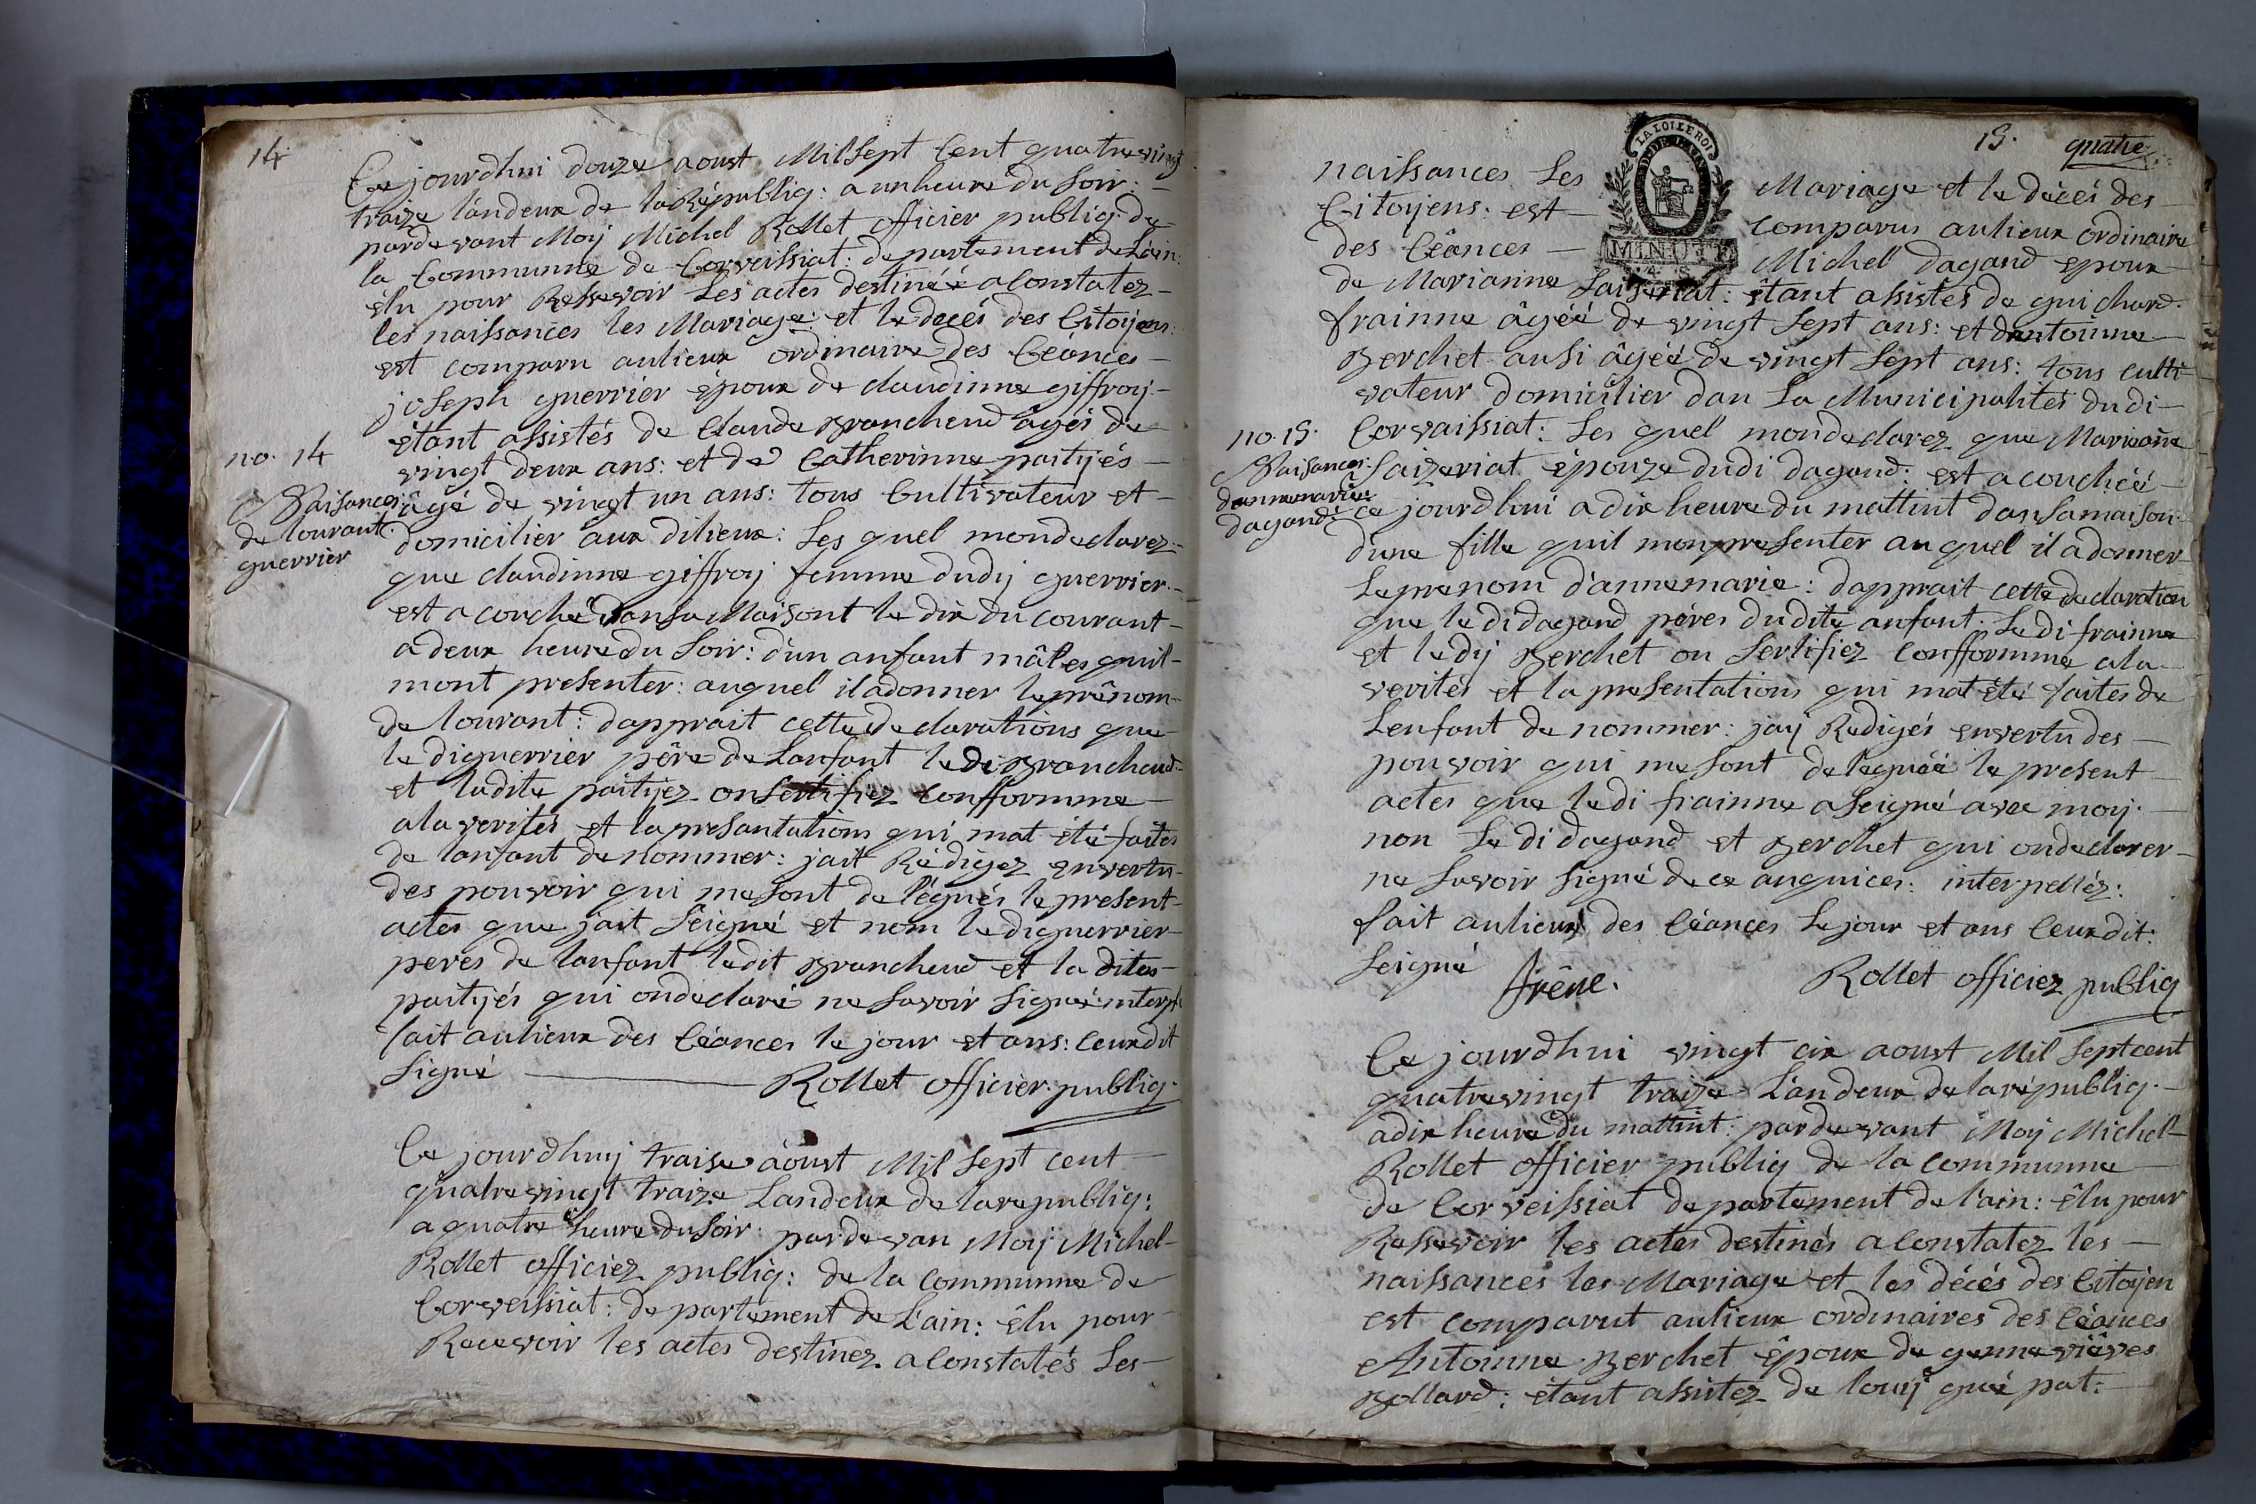 14
Ce jourdhui douze aoust Mil Sept Cent quatre vingt
traize l'andeux de la Républiq: a un heure du Soir: —
pardevant Moy Michel Rollet officier publiq. de
la Communne de Corveissiat: departement de Lain:
élu pour Ressevoir Les actes destinéé a Constatez —
les naissances les Mariage: et le decés des Citoyens:
est comparu aulieux ordinaire des Céances —
joseph guerrier époux de claudinne giffroy —
étant assistés de Claude Branchend âgés de —
no. 14
vingt deux ans: et de Catherinne paityés —
Naisances
âgé de vingt un ans: tous Cultivateur et —
de lourant.
domicilier aux dilieux: Les quel mondedarez —
guerrier
que claudinne giffroy femme dudy guerrier. —
est a couché dansa Maisont le dix du courant —
a deux heure du Soir: d'un anfant mâles quil —
mont presenter: auquel iladonner leprênom —
de lourant: dapprait cette declarations que
le diguerrier pêre de Lanfant ledi Branchend
et ladite paityez on Sertifiez Confformme —
ala verités et lapresantations qui mat été faites
de lanfant denommer: jait Rédigez envertu
des pouvoir qui mesont de légnés le present —
actes que jait Seigné et nom lediguerrier —
peres de lanfant ledit Branchend et la dites —
paityés qui ondéclaré ne Savoir Signé interpl
fait aulieux des Céances le jour et ans: Ceuxdit
Signé — Rollet officier. publiq.
Ce jourdhuy traise aoust Mil Sept cent —
quatrevingt traize Landeux de larepubliq:
a quatre heure du Soir: pardevan Moy Michel —
Rollet officiez publiq: de la communne de
Corveissiat: de partement de L'ain: élu pour —
Recevoir les actes destinez a Constatés Les —
15. quatre
LA LOI LE ROI
MINUTE
4. S
naissances Les Mariage et le décés des —
Citoyens: est — comparus aulieux ordinaire
des Céances — Michel dagand epoux —
de Marianne Saiseriat: étant assistés de guichard.
frainne âgéé de vingt Sept ans: et dantoinne —
Berchet ausi âgéé de vingt Sept ans: tous culti
vateur domicilier dan La Municipalités dudi —
no. 15.
Corvaissiat: Les quel mondedarez que Marieanne
Naisances.
Saizeriat épouze dudi dagand: est acouchéé —
dannemaries
ce jourdhui a dix heure du mattint dansamaison
dagand:
dune fille quil monpresenter auquel il adonner
Leprenom d'annemarie: dapprait cette declaration
que le didagand péres dudite anfant. Ledi frainne
et le dy Berchet on Sertifiez Confformme ala —
verités et la presentations qui mat été faites de
Lenfant de nommer: jay Redigés envertu des —
pouvoir qui me Sont deléguéé le present —
actes que ledi frainne aSeigné avec moy. —
non Le di dagand et Berchet qui ondedarer —
ne Savoir Signé de ce anquices: interpelléz:
fait aulieux des Céances Lejour et ans Ceuxdit:
Seigné
frêne. Rollet officiez publiq
Ce jourdhui vingt cix aoust Mil Sept cent
quatrevingt traize Landeux de larépubliq. —
adix heure du mattint: pardevant Moy Michel —
Rollet officier publiq de la communne —
de Corveissiat departement de l'ain: élu pour
Ressevoir les actes destinés a Constatez les —
naissances les Mariage et les décés des Citoyen
est comparut aulieux ordinaires des Céances
Antoinne Berchet époux de genneviêves
Bollard: étant assistez de louy gué pat: —